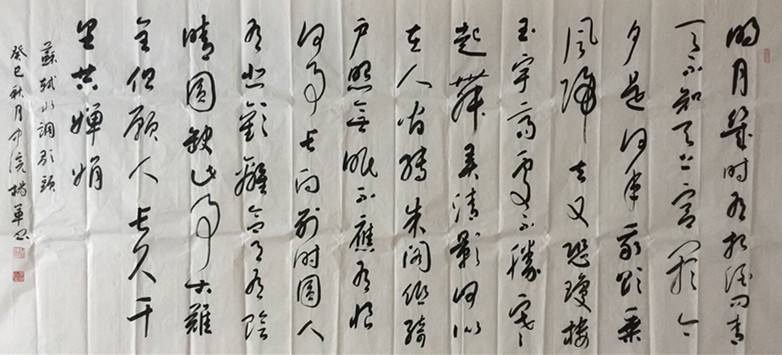 明月幾時有把酒問青
天不知天上宮闕今
夕是何年我欲乘
風歸去又恐瓊樓
玉宇高處不勝寒
起舞弄清影何似
在人間轉朱閣低綺
户照無眠不應有恨
何事長向別時圓人
有悲歡離合月有陰
晴圓缺此事古難
全但願人長久千
里共嬋娟
蘇軾水調歌頭
癸巳秋月中浣